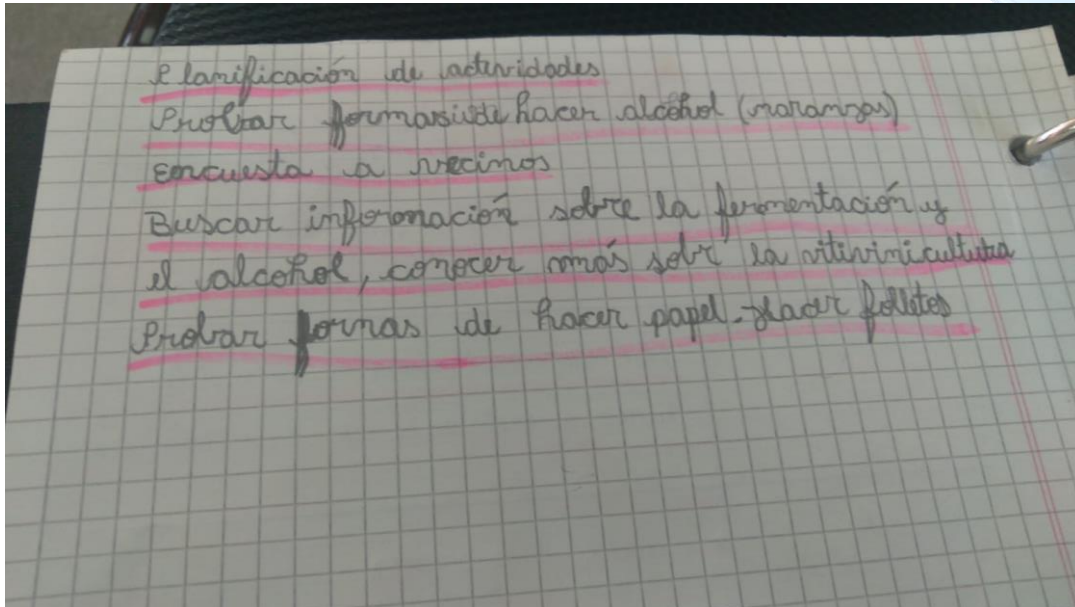 Planificación de actividades
Probar formas de hacer alcohol (naranzas)
encuesta a vecinos
Buscar información sobre la fermentación y
el alcohol, conocer más sobr la vitivinicultura
Probar formas de hacer papel-Hacer folletos